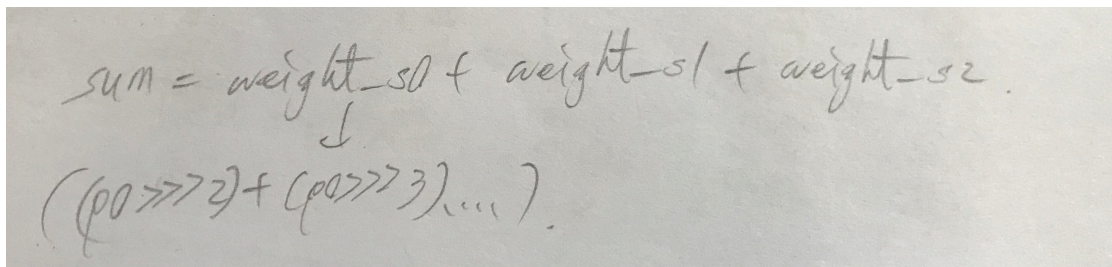 sum = weight_s0 + weight_s1 + weight_s2.
↓
((p0>>>2)+(p0>>>3)....).